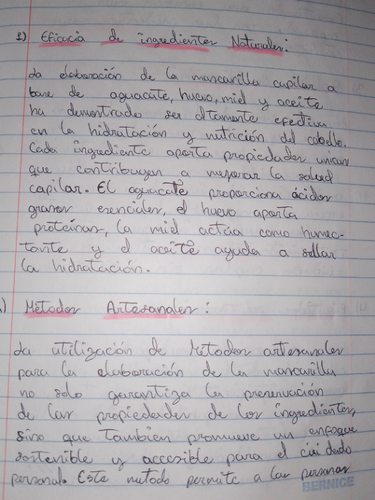 1) Eficacia de ingredientes Naturales:
La elaboración de la mascarilla capilar a
base de aguacate, huevo, miel y aceite
ha demostrado ser altamente efectiva
en la hidratación y nutrición del cabello.
Cada ingrediente aporta propiedades unicas
que contribuyen a mejorar la salud
capilar. El aguacate proporciona ácidos
grasos esenciales, el huevo aporta
proteínas, la miel actúa como humec-
tante y el aceite ayuda a sellar
la hidratación.
) Métodos Artesanales:
La utilización de Métodos artesanales
para la elaboración de la mascarilla
no solo garantiza la preservación
de las propiedades de los ingredientes,
sino que tambien promueve un enfoque
sostenible y accesible para el cuidado
personal. Este metodo permite a las personas
BERNICE